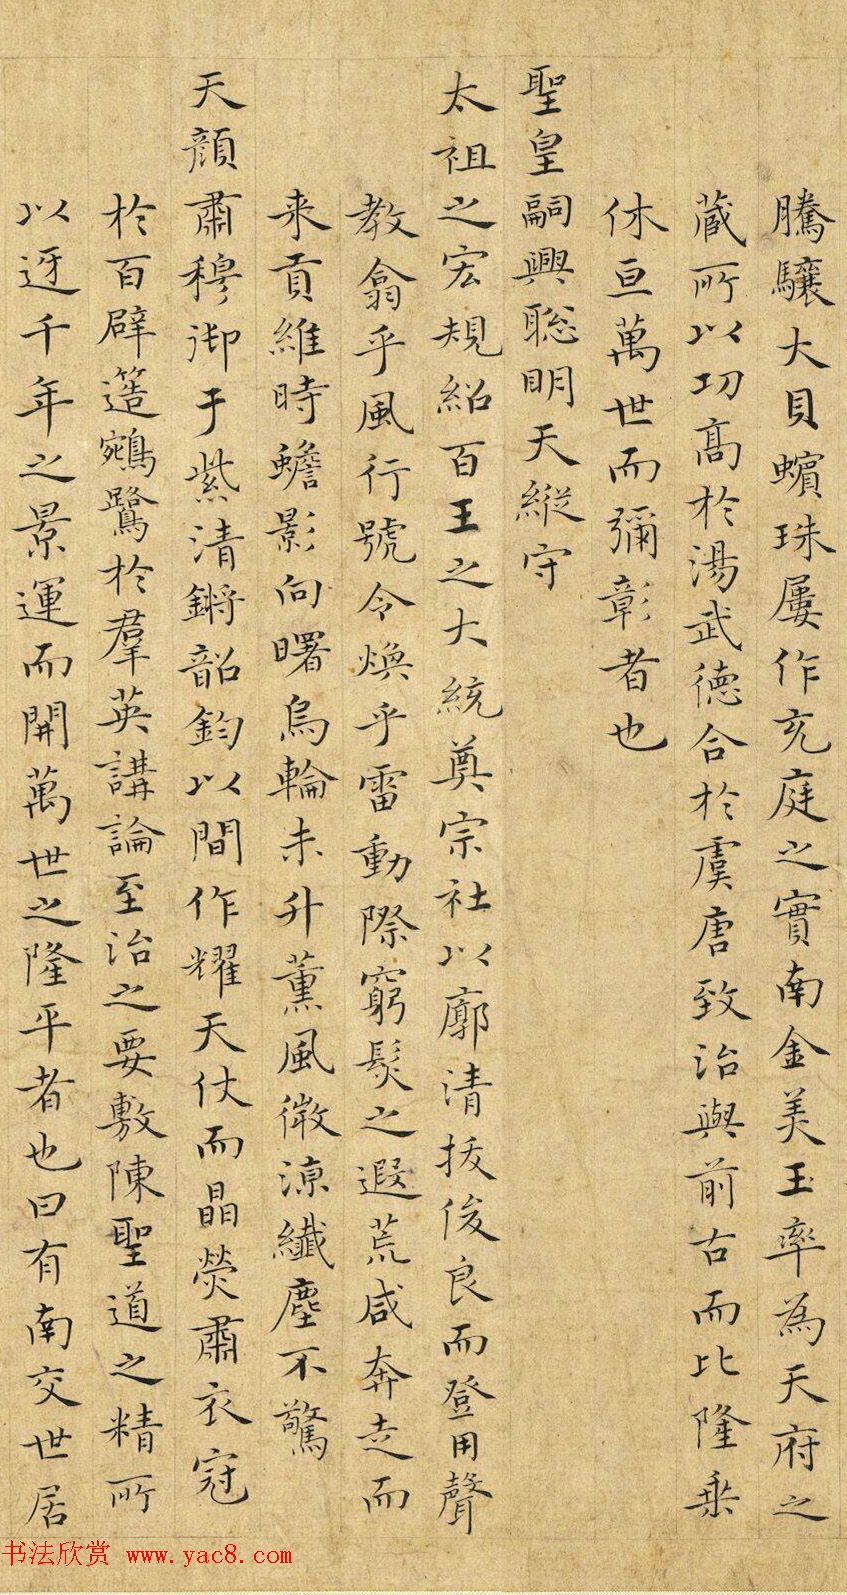 騰驤大貝蠙珠屢作充庭之實南金美玉率為天府之
蔵所以功髙於湯武德合於虞唐致治與前古而比隆乗
休亘萬世而彌彰者也
聖皇嗣興聡明天縦守
太祖之宏規紹百王之大統奠宗社以廓清拔俊良而登用聲
教翕乎風行號令煥乎雷動際窮髪之遐荒咸奔走而
来貢維時蟾影向曙烏輪未升薫風微涼纎塵不驚
天顔肅穆御于紫清鏘韶鈞以間作耀天仗而晶熒肅衣冠
於百辟簉鵷鷺於羣英講論至治之要敷陳聖道之精所
以迓千年之景運而開萬世之隆平者也曰有南交世居
书法欣赏 www.yac8.com